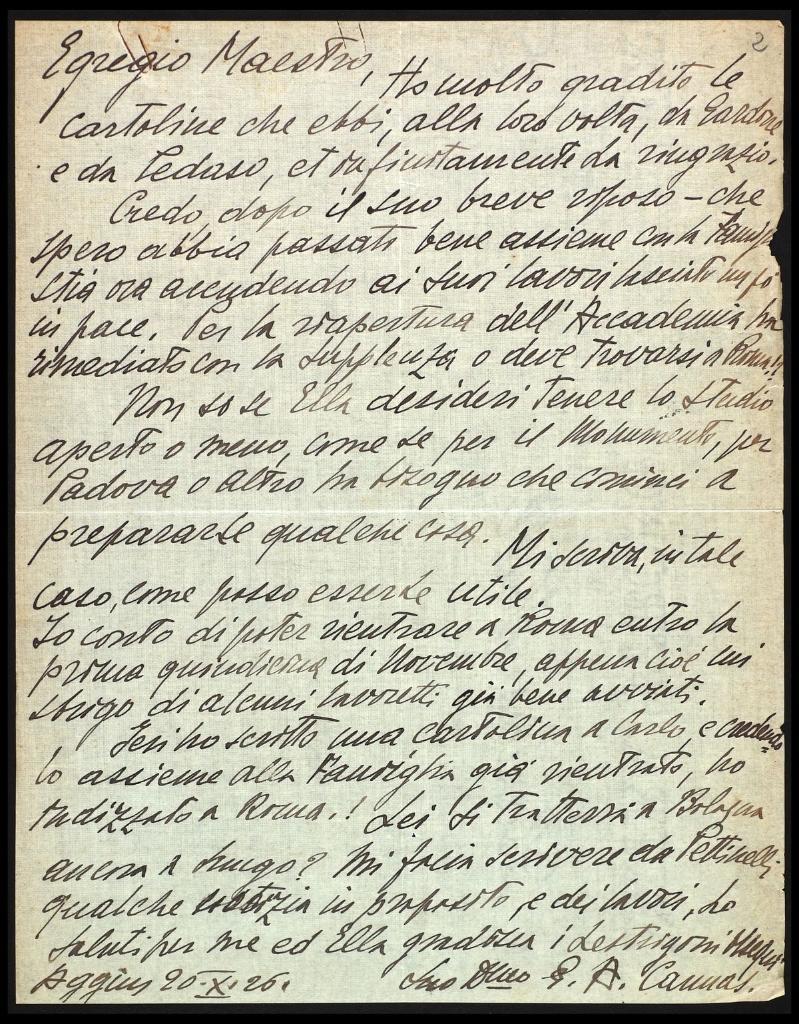 2
Egregio Maestro,
Ho molto gradito le
cartoline che ebbi, alla loro volta, da Gardone
e da Pedaso, ed infinitamente La ringrazio.
Credo, dopo il suo breve riposo – che
spero abbia passato bene assieme con la Famiglia
stia ora accudendo ai suoi lavori lasciati un pò
in pace. Per la riapertura dell'Accademia ha
rimediato con la supplenza o deve trovarsi a Roma?
Non so se Ella desideri tenere lo studio
aperto o meno, come se per il Monumento, per
Padova o altro ha bisogno che cominci a
prepararLe qualche cosa.
Mi scriva, in tale
caso, come posso esserLe utile.
Io conto di poter rientrare a Roma entro la
prima quindicina di Novembre, appena cioè mi
sbrigo di alcuni lavoretti già bene avviati.
Ieri ho scritto una cartolina a Carlo, e credendo
lo assieme alla Famiglia già rientrato, ho
indizzato a Roma.! Lei si tratterrà a Bologna
ancora a lungo? Mi facia scrivere da Pettinelli
qualche notizia in proposito, e dei lavori, Lo
saluti per me ed Ella gradisca i
Aggius 20.X.26.
Suo Dmo E. A. Cannas.